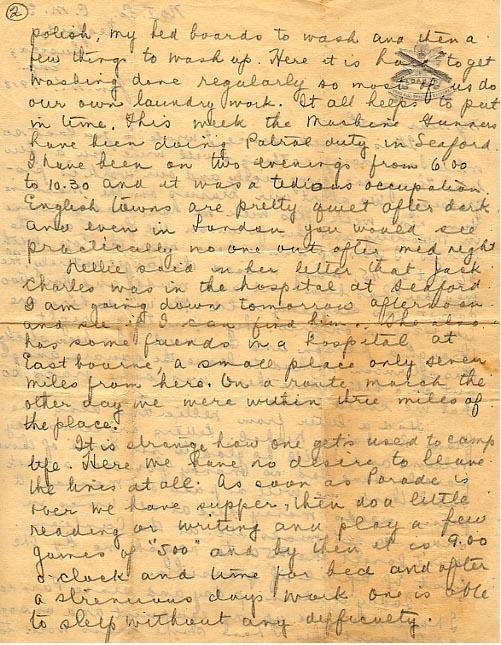 2
polish, my bed boards to wash and then a
few things to wash up. Here it is hard to get
washing done regularly so most of us do
our own laundry work. It all helps to put
in time. This week the Machine Gunners
have been doing Patrol duty in Seaford
I have been on two evenings from 6.00
to 10.30 and it was a tedious occupation.
English towns are pretty quiet after dark
and even in London you would see
practically no one out after mid night
Nellie said in her letter that Jack
Charles was in the hospital at Seaford
I am going down tomorrow afternoon
and see if I can find him. She also
has some friends in a hospital at
Eastbourne, a small place only seven
miles from here. On a route march the
other day we were within three miles of
the place.
It is strange how one gets used to camp
life. Here we have no desire to leave
the lines at all. As soon as Parade is
over we have supper, then do a little
reading or writing and play a few
games of "500" and by then it is 9.00
o-clock and time for bed and after
a strenuous days work one is able
to sleep without any difficulty.